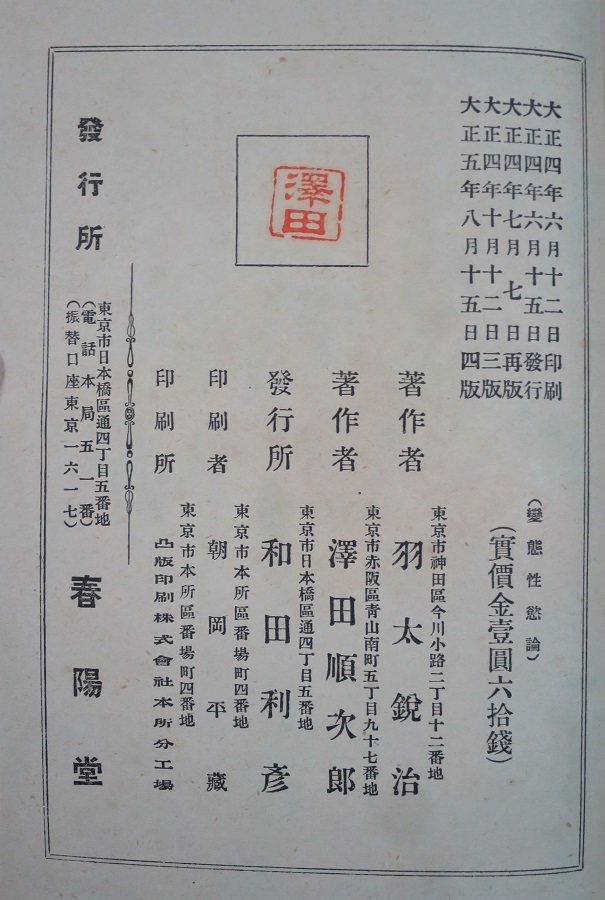 大正四年六月十二日印刷
大正四年六月十五日發行
大正四年七月七日再版
大正四年十月十二日三版
大正五年八月十五日四版
(變態性慾論)
(實價金壹圓六拾錢)
東京市神田區今川小路二丁目十二番地
著作者 羽太銳治
東京市赤阪區青山南町五丁目九十七番地
著作者 澤田順次郎
東京市日本橋區通四丁目五番地
發行所 和田利彥
東京市本所區番場町四番地
印刷者 朝岡平藏
東京市本所區番場町四番地
印刷所 凸版印刷株式會社本所分工場
澤田
發行所
東京市日本橋區通四丁目五番地
(電話本局五一番)
(振替口座東京一六一七)
春陽堂